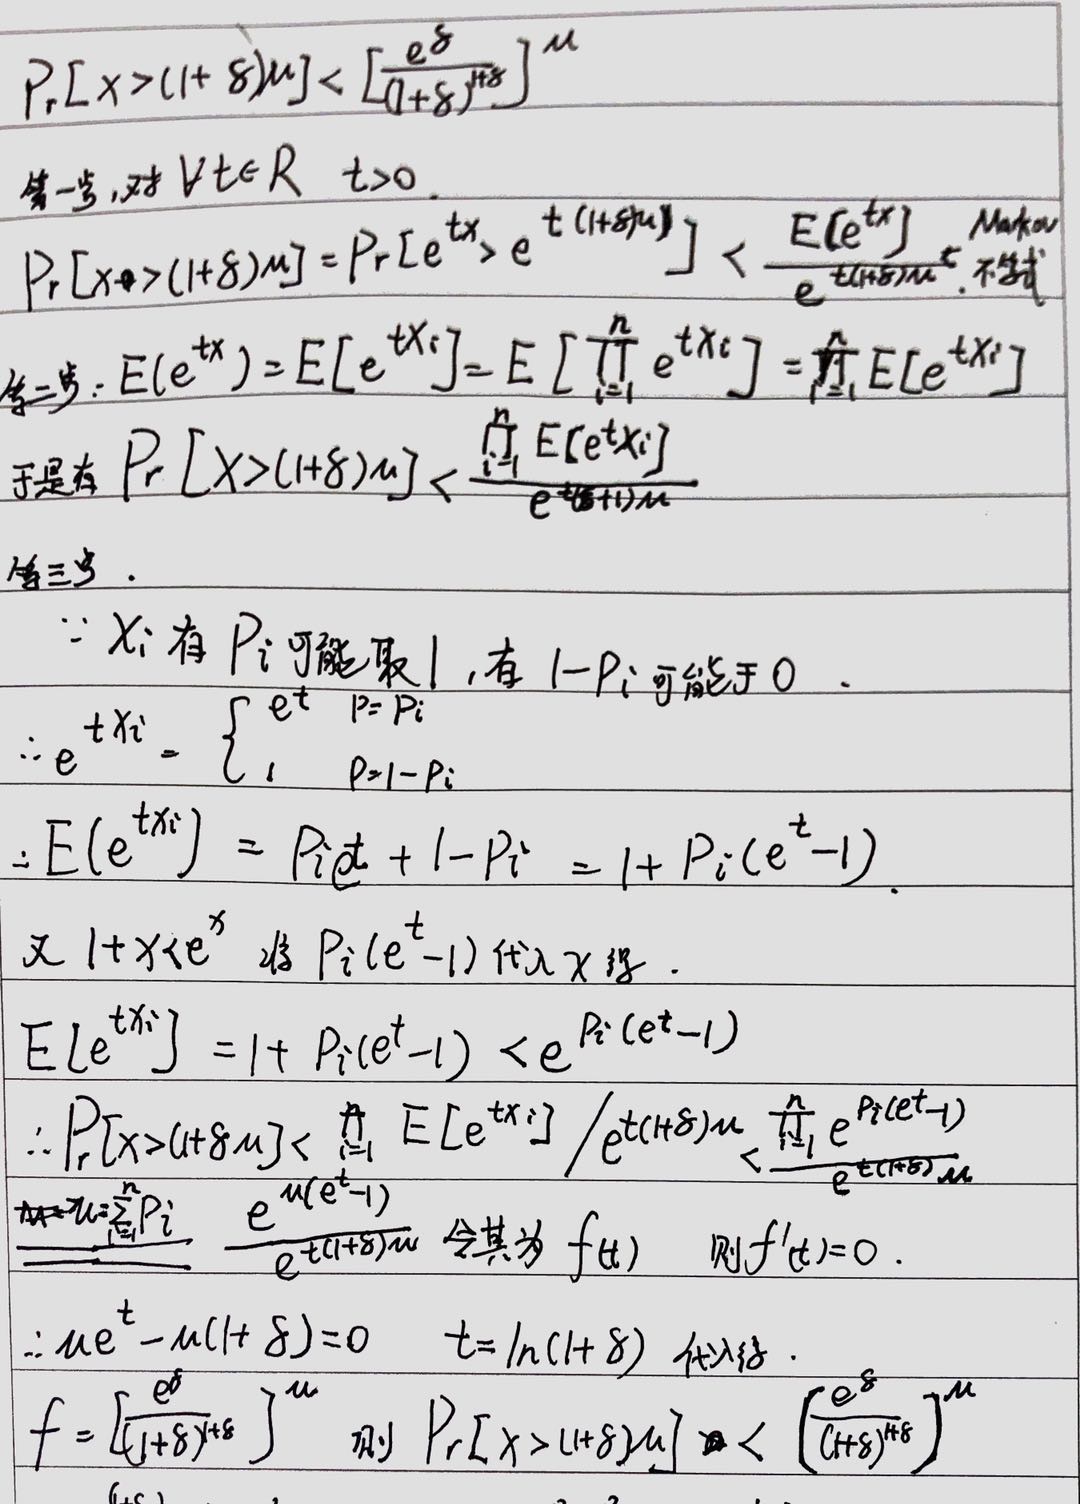 Pr[X>(1+δ)μ]<[e^δ/(1+δ)^(1+δ)]^μ
第一步,对∀t∈R t>0.
Pr[X>(1+δ)μ]=Pr[e^(tx)>e^(t(1+δ)μ)]<E[e^(tx)]/e^(t(1+δ)μ). Markov不等式
第二步:E(e^(tx))=E[e^(tXi)]=E[∏_(i=1)^n e^(tXi)]=∏_(i=1)^n E[e^(tXi)]
于是有 Pr[X>(1+δ)μ]<∏_(i=1)^n E[e^(tXi)]/e^(t(δ+1)μ)
第三步.
∵Xi有Pi可能取1,有1-Pi可能于0.
∴e^(tXi)={e^t P=Pi
1 P=1-Pi
∴E(e^(tXi))=Pie^t+1-Pi=1+Pi(e^t-1).
又1+x<e^x 将Pi(e^t-1)代入x得.
E[e^(tXi)]=1+Pi(e^t-1)<e^(Pi(e^t-1))
∴Pr[X>(1+δμ]<∏_(i=1)^n E[e^(tXi)]/e^(t(1+δ)μ)<∏_(i=1)^n e^(Pi(e^t-1))/e^(t(1+δ)μ)
μ=∑_(i=1)^n Pi e^(μ(e^t-1))/e^(t(1+δ)μ) 令其为f(t) 则f'(t)=0.
∴μe^t-μ(1+δ)=0 t=ln(1+δ) 代入得.
f=[e^δ/(1+δ)^(1+δ)]^μ 则Pr[X>(1+δ)μ]<(e^δ/(1+δ)^(1+δ))^μ